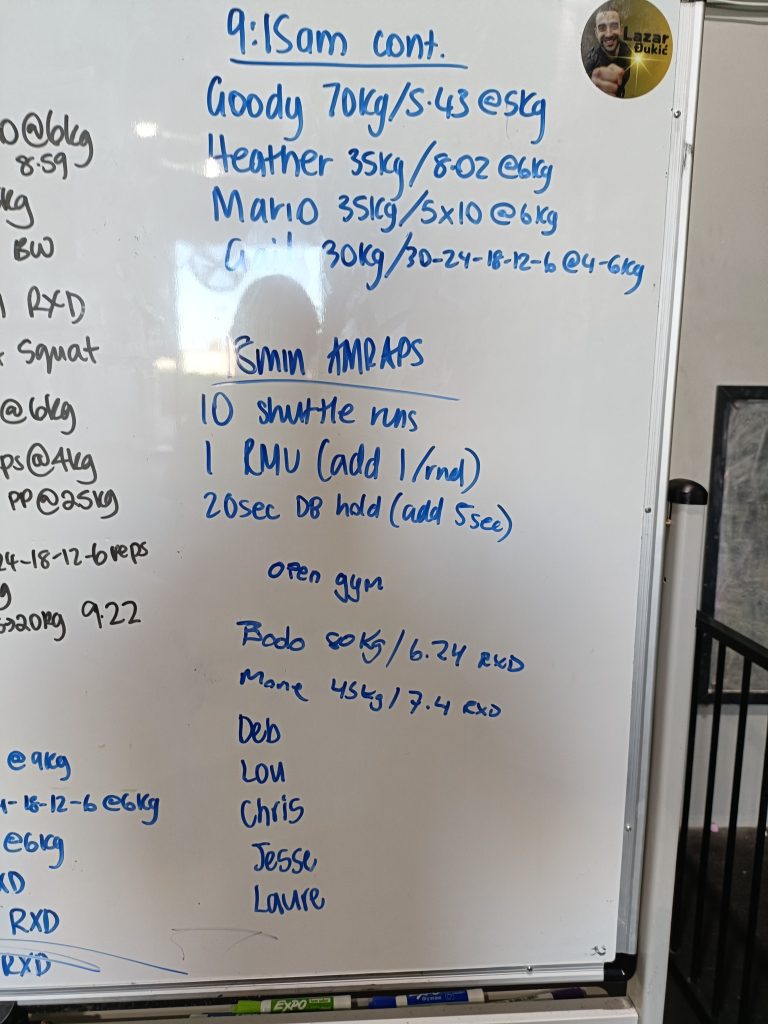 9:15am cont.
Goody 70kg/5.43 @5kg
Heather 35kg/8.02 @6kg
Mario 35kg/5x10 @6kg
30kg/30-24-18-12-6 @4-6kg
min AMRAPS
10 shuttle runs
1 RMU (add 1/rnd)
20sec DB hold (add 5sec)
open gym
Bodo 80kg/6.24 RXD
45kg/7.4 RXD
Deb
Lou
Chris
Jesse
Laure
@6kg
8:59
kg
BW
RXD
Squat
@6kg
ps@4kg
PP@25kg
24-18-12-6 reps
g
20kg 9.22
@9kg
-18-12-6 @6kg
@6kg
XD
RXD
RXD
Lazar
Đukić
EXPO